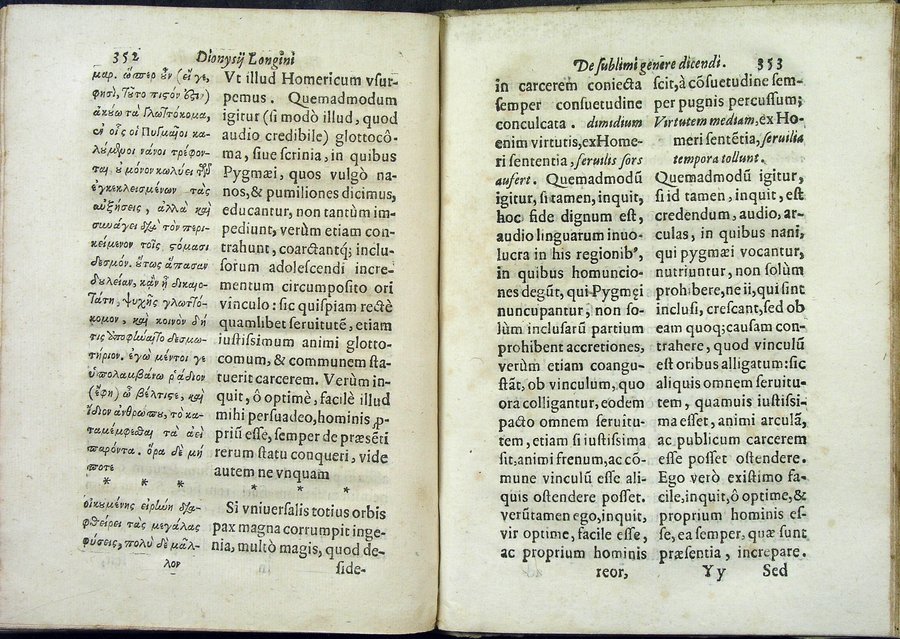 352 Dionysij Longini
μαρ. ὥσπερ οὖν (εἴ γε,
φησὶ, τοῦτο πιστὸν ἀξιῶ)
ἀκούω τὰ Γλωττόκομα,
ἐν οἷς οἱ Πυγμαῖοι κα-
λούμενοι νάνοι τρέφον-
ται, οὐ μόνον κωλύει τῶν
ἐγκεκλεισμένων τὰς
αὐξήσεις, ἀλλὰ καὶ
συνάγει διὰ τὸν περι-
κείμενον τοῖς στόμασι
δεσμόν. οὕτως ἅπασαν
δουλείαν, κἂν ᾖ δικαιο-
τάτη, ψυχῆς γλωττό-
κομον, καὶ κοινὸν δή
τις ἀποφήναιτο δεσμω-
τήριον. ἐγὼ μέντοι γε
ὑπολαμβάνω ῥᾴδιον
(ἔφη) ὦ βέλτιστε, καὶ
ἴδιον ἀνθρώπου, τὸ κα-
ταμέμφεσθαι τὰ ἀεὶ
παρόντα. ὅρα δὲ μή
ποτε
* * *
οἰκουμένης εἰρήνη δια-
φθείρει τὰς μεγάλας
φύσεις, πολὺ δὲ μᾶλ-
λον
Vt illud Homericum vsur-
pemus. Quemadmodum
igitur (si modò illud, quod
audio credibile) glottocô-
ma, siue scrinia, in quibus
Pygmæi, quos vulgò na-
nos, & pumiliones dicimus,
educantur, non tantùm im-
pediunt, verùm etiam con-
trahunt, coarctantq́; inclu-
sorum adolescendi incre-
mentum circumposito ori
vinculo: sic quispiam rectè
quamlibet seruitutē, etiam
iustissimum animi glotto-
comum, & communem sta-
tuerit carcerem. Verùm in-
quit, ô optimè, facilè illud
mihi persuadeo, hominis ꝓ-
priū esse, semper de præsēti
rerum statu conqueri, vide
autem ne vnquam
* * *
Si vniuersalis totius orbis
pax magna corrumpit inge-
nia, multò magis, quod de-
side-
De sublimi genere dicendi. 353
in carcerem coniecta
semper consuetudine
conculcata. dimidium
enim virtutis, ex Home-
ri sententia, seruilis sors
aufert. Quemadmodū
igitur, si tamen, inquit,
hoc fide dignum est,
audio linguarum inuo-
lucra in his regionib⁹,
in quibus homuncio-
nes degūt, qui Pygmęi
nuncupantur, non so-
lùm inclusarū partium
prohibent accretiones,
verùm etiam coangu-
stāt, ob vinculum, quo
ora colligantur, eodem
pacto omnem seruitu-
tem, etiam si iustissima
sit, animi frenum, ac cō-
mune vinculū esse ali-
quis ostendere posset.
verūtamen ego, inquit,
vir optime, facile esse,
ac proprium hominis
reor,
scit, à cōsuetudine sem-
per pugnis percussum;
Virtutem mediam, ex Ho-
meri sentētia, seruilia
tempora tollunt.
Quemadmodū igitur,
si id tamen, inquit, est
credendum, audio, ar-
culas, in quibus nani,
qui pygmæi vocantur,
nutriuntur, non solùm
prohibere, ne ii, qui sint
inclusi, crescant, sed ob
eam quoq; causam con-
trahere, quod vinculū
est oribus alligatum: sic
aliquis omnem seruitu-
tem, quamuis iustissi-
ma esset, animi arculā,
ac publicum carcerem
esse posset ostendere.
Ego verò existimo fa-
cile, inquit, ô optime, &
proprium hominis es-
se, ea semper, quæ sunt
præsentia, increpare.
Yy Sed